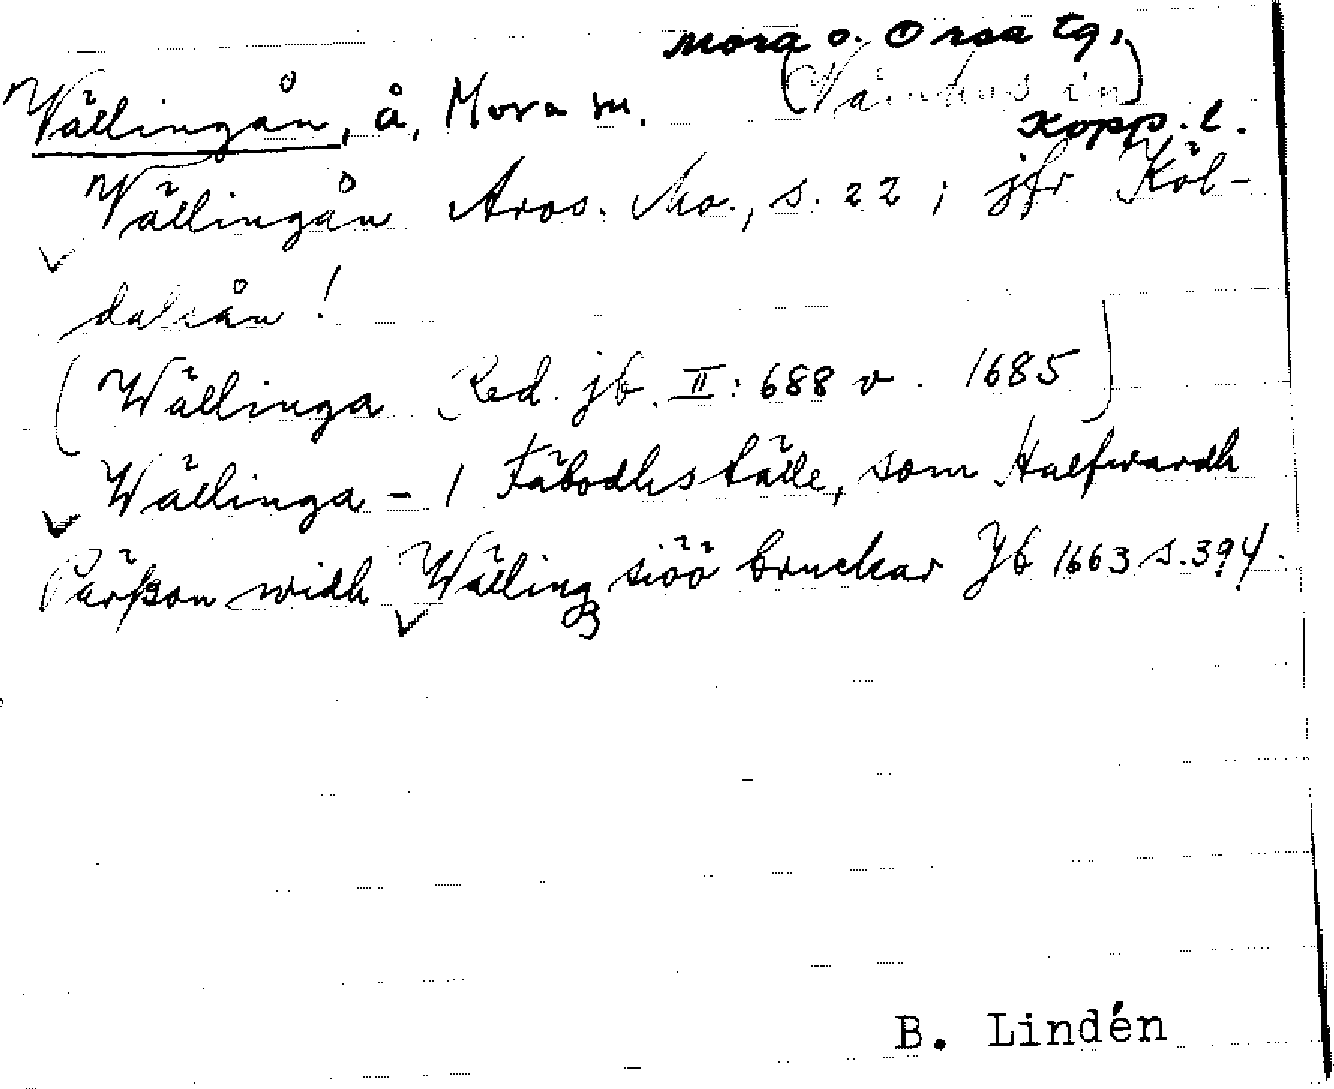 Mora o. Orsa tg.
Vällingån, å, Mora sn. (Våmhus sn)
Kopp. l.
Vällingån Aros. Mo., s. 22, jfr Köl-
dalsån!
(Wällinga Red. jb. II: 688 v. 1685)
Wällinga - 1 Fäbodhställe, som Halfwardh
Pärßon widh Wälling siöö bruckar Jb 1663 s. 394.
B. Lindén